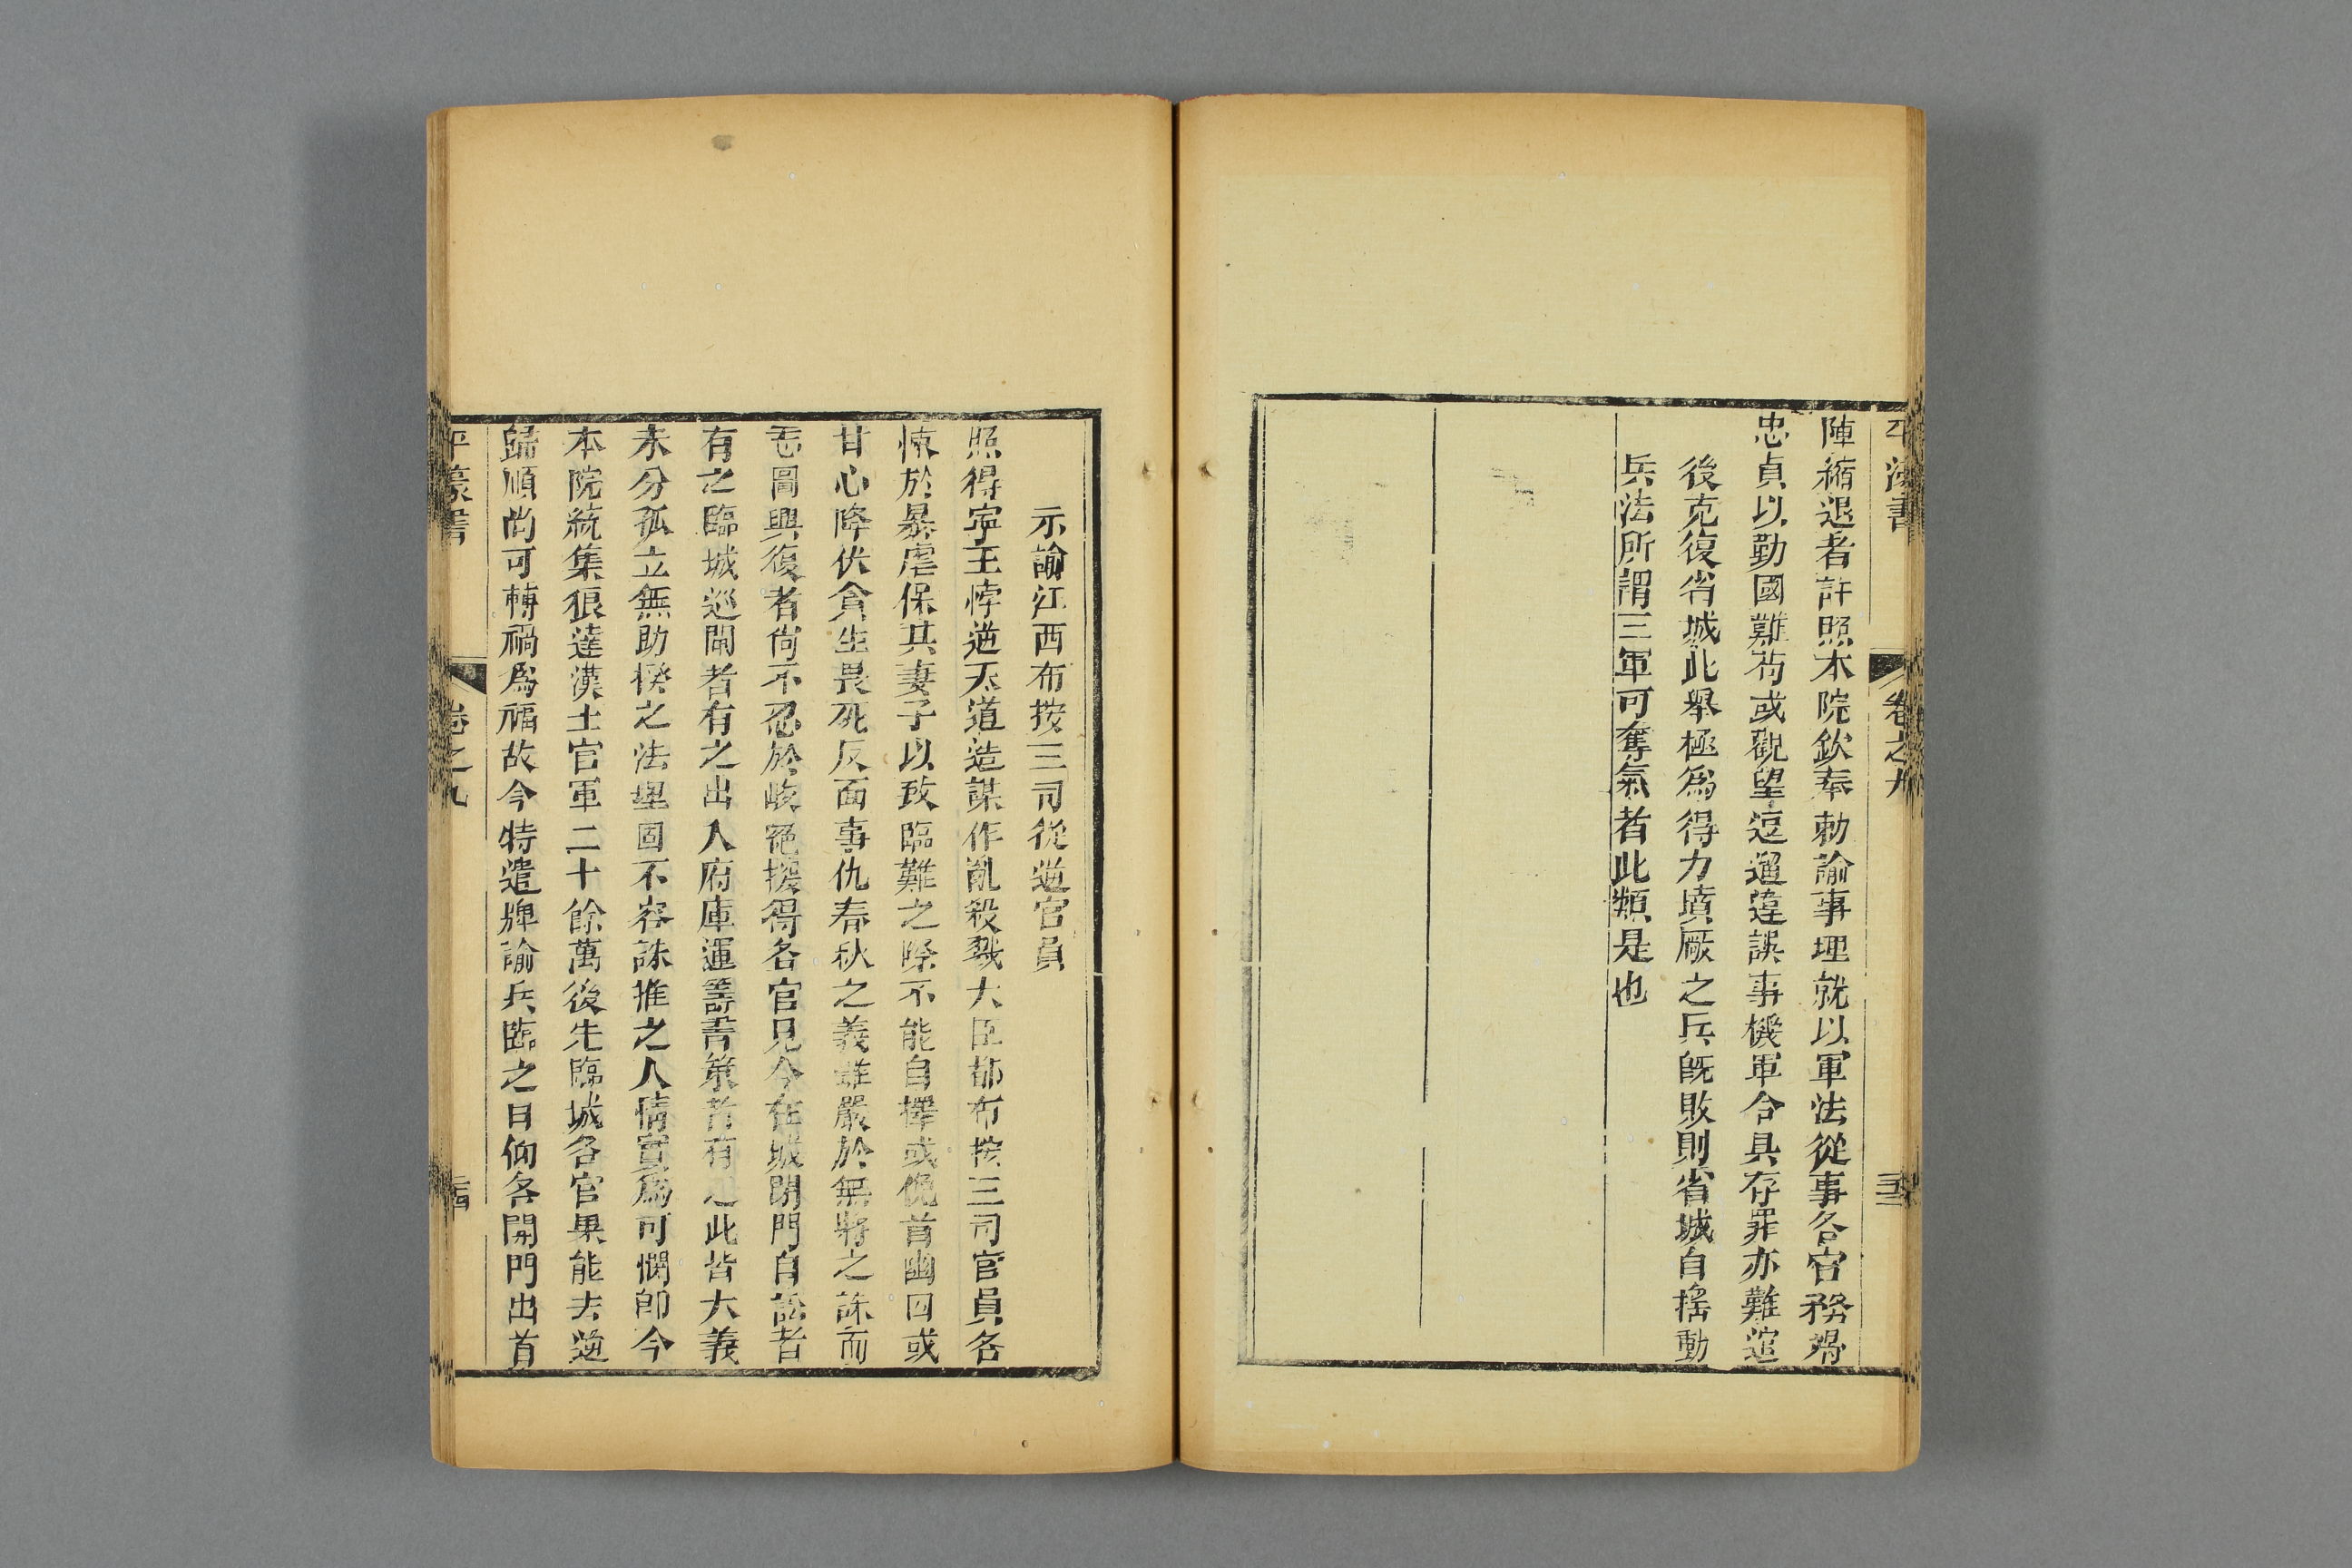 平濠書 卷之九
陣縮退者許照本院欽奉勅諭事理就以軍法從事各官務竭
忠貞以勤國難苟或觀望逗遛違誤事機軍令具存罪亦難逭
後克復省城此舉極爲得力墳厰之兵旣敗則省城自搖動
兵法所謂三軍可奪氣者此類是也
示諭江西布按三司從逆官員
照得寜王悖逆天道造謀作亂殺戮大臣都布按三司官員各
悚於暴虐保其妻子以致臨難之際不能自擇或俛首幽囚或
甘心降伏貪生畏死反面事仇春秋之義雖嚴於無將之誅而
志圖興復者尙不忍於峻絶據得各官見今在城閉門自訟者
有之臨城巡閙者有之出入府庫運籌畫策者有之此皆大義
未分孤立無助揆之法理固不容誅推之人情實爲可憫卽今
本院統集狼達漢土官軍二十餘萬後先臨城各官果能去逆
歸順尙可轉禍爲福故今特遣牌諭兵臨之日仰各開門出首
平濠書 卷之九